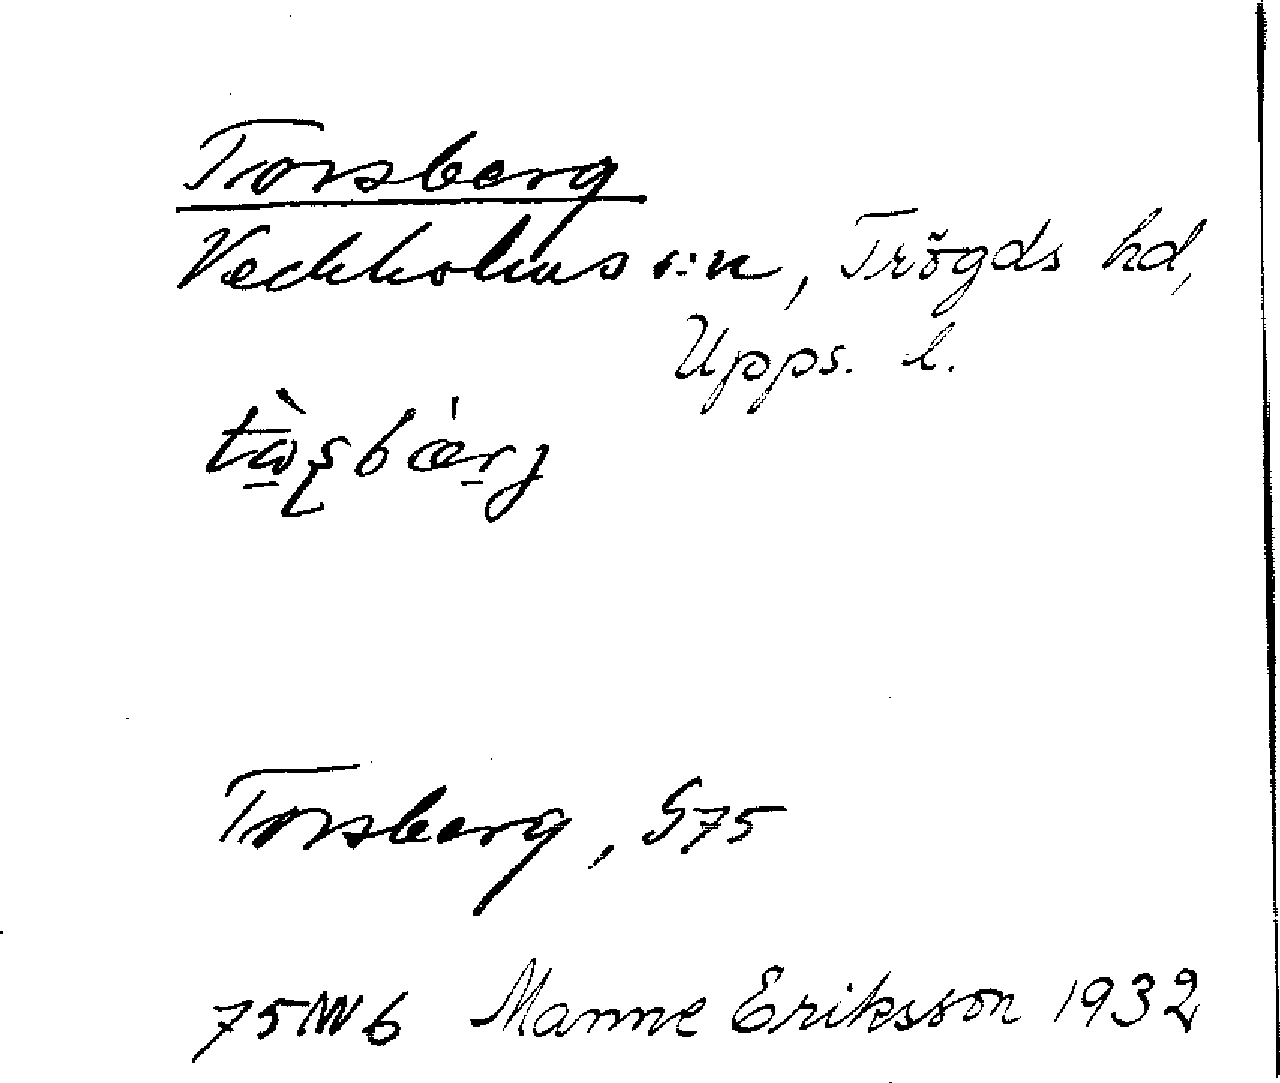 Torsberg
Veckholms s:n, Trögds hd,
Upps. l.
Torsberg, S75
75NV6 Manne Eriksson 1932